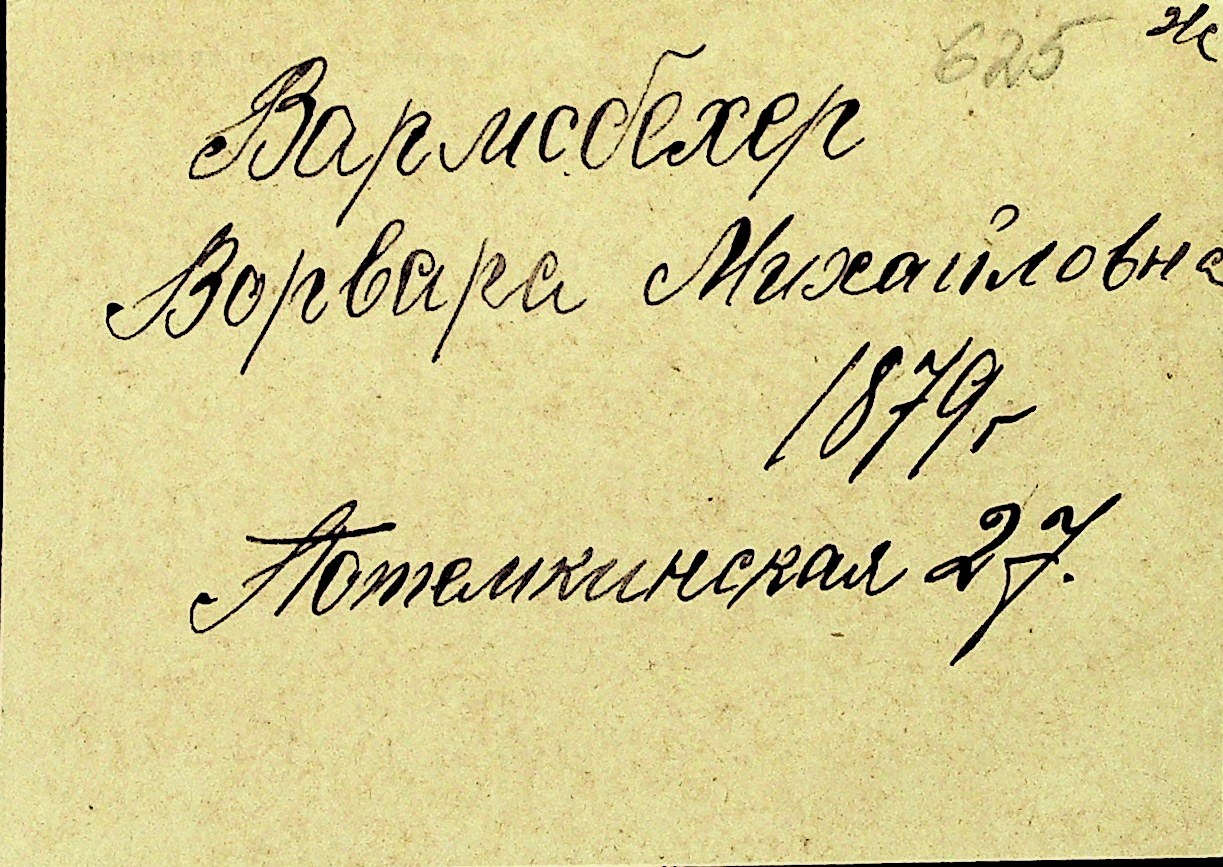 625 ж
Вармсбехер
Варвара Михайловна
1879 г
Потемкинская 27.